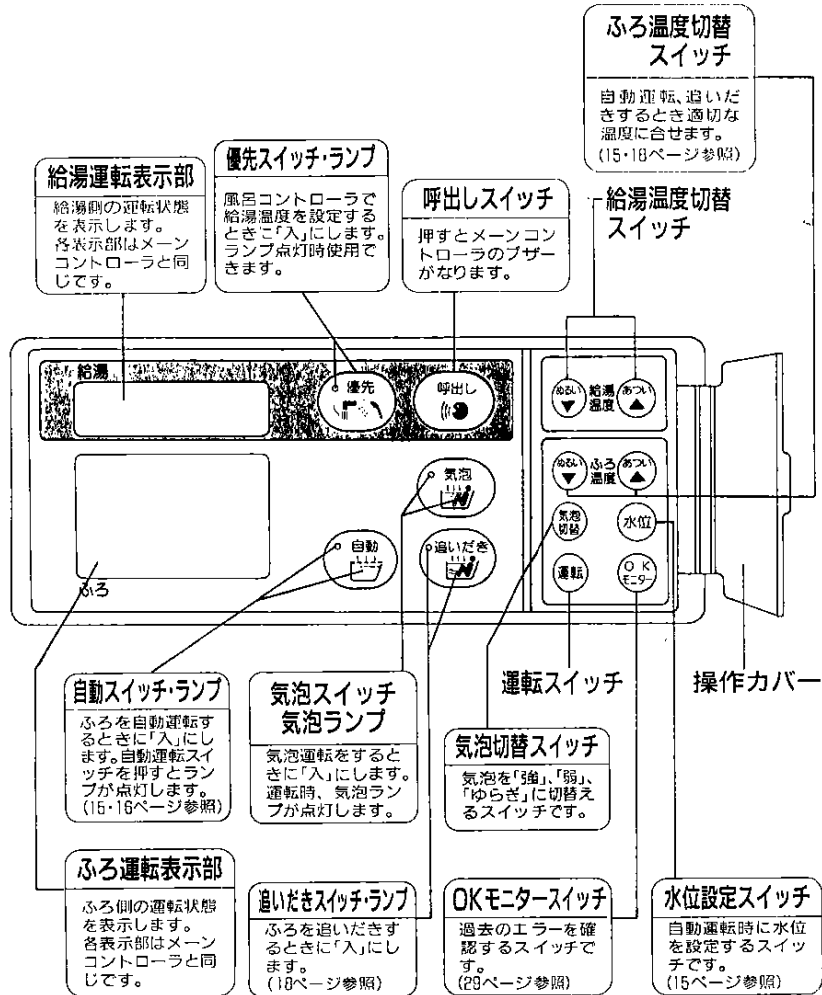 ふろ温度切替
スイッチ
自動運転、追いだ
きするとき適切な
温度に合せます。
(15・18ページ参照)
給湯運転表示部
給湯側の運転状態
を表示します。
各表示部はメーン
コントローラと同
じです。
優先スイッチ・ランプ
風呂コントローラで
給湯温度を設定する
ときに「入」にします。
ランプ点灯時使用で
きます。
呼出しスイッチ
押すとメーンコン
トローラのブザー
がなります。
給湯温度切替
スイッチ
給湯
優先
呼出し
ぬるい
給湯
温度
あつい
ぬるい
ふろ
温度
あつい
気泡
気泡
切替
水位
自動
追いだき
運転
OK
モニター
ふろ
運転スイッチ
操作カバー
自動スイッチ・ランプ
ふろを自動運転す
るときに「入」にし
ます。自動運転スイ
ッチを押すとラン
プが点灯します。
(15・16ページ参照)
気泡スイッチ
気泡ランプ
気泡運転をすると
きに「入」にします。
運転時、気泡ラン
プが点灯します。
気泡切替スイッチ
気泡を「強」、「弱」、
「ゆらぎ」に切替え
るスイッチです。
ふろ運転表示部
ふろ側の運転状態
を表示します。
各表示部はメーン
コントローラと同
じです。
追いだきスイッチ・ランプ
ふろを追いだきす
るときに「入」にし
ます。
(18ページ参照)
OKモニタースイッチ
過去のエラーを確
認するスイッチで
す。
(29ページ参照)
水位設定スイッチ
自動運転時に水位
を設定するスイッ
チです。
(15ページ参照)